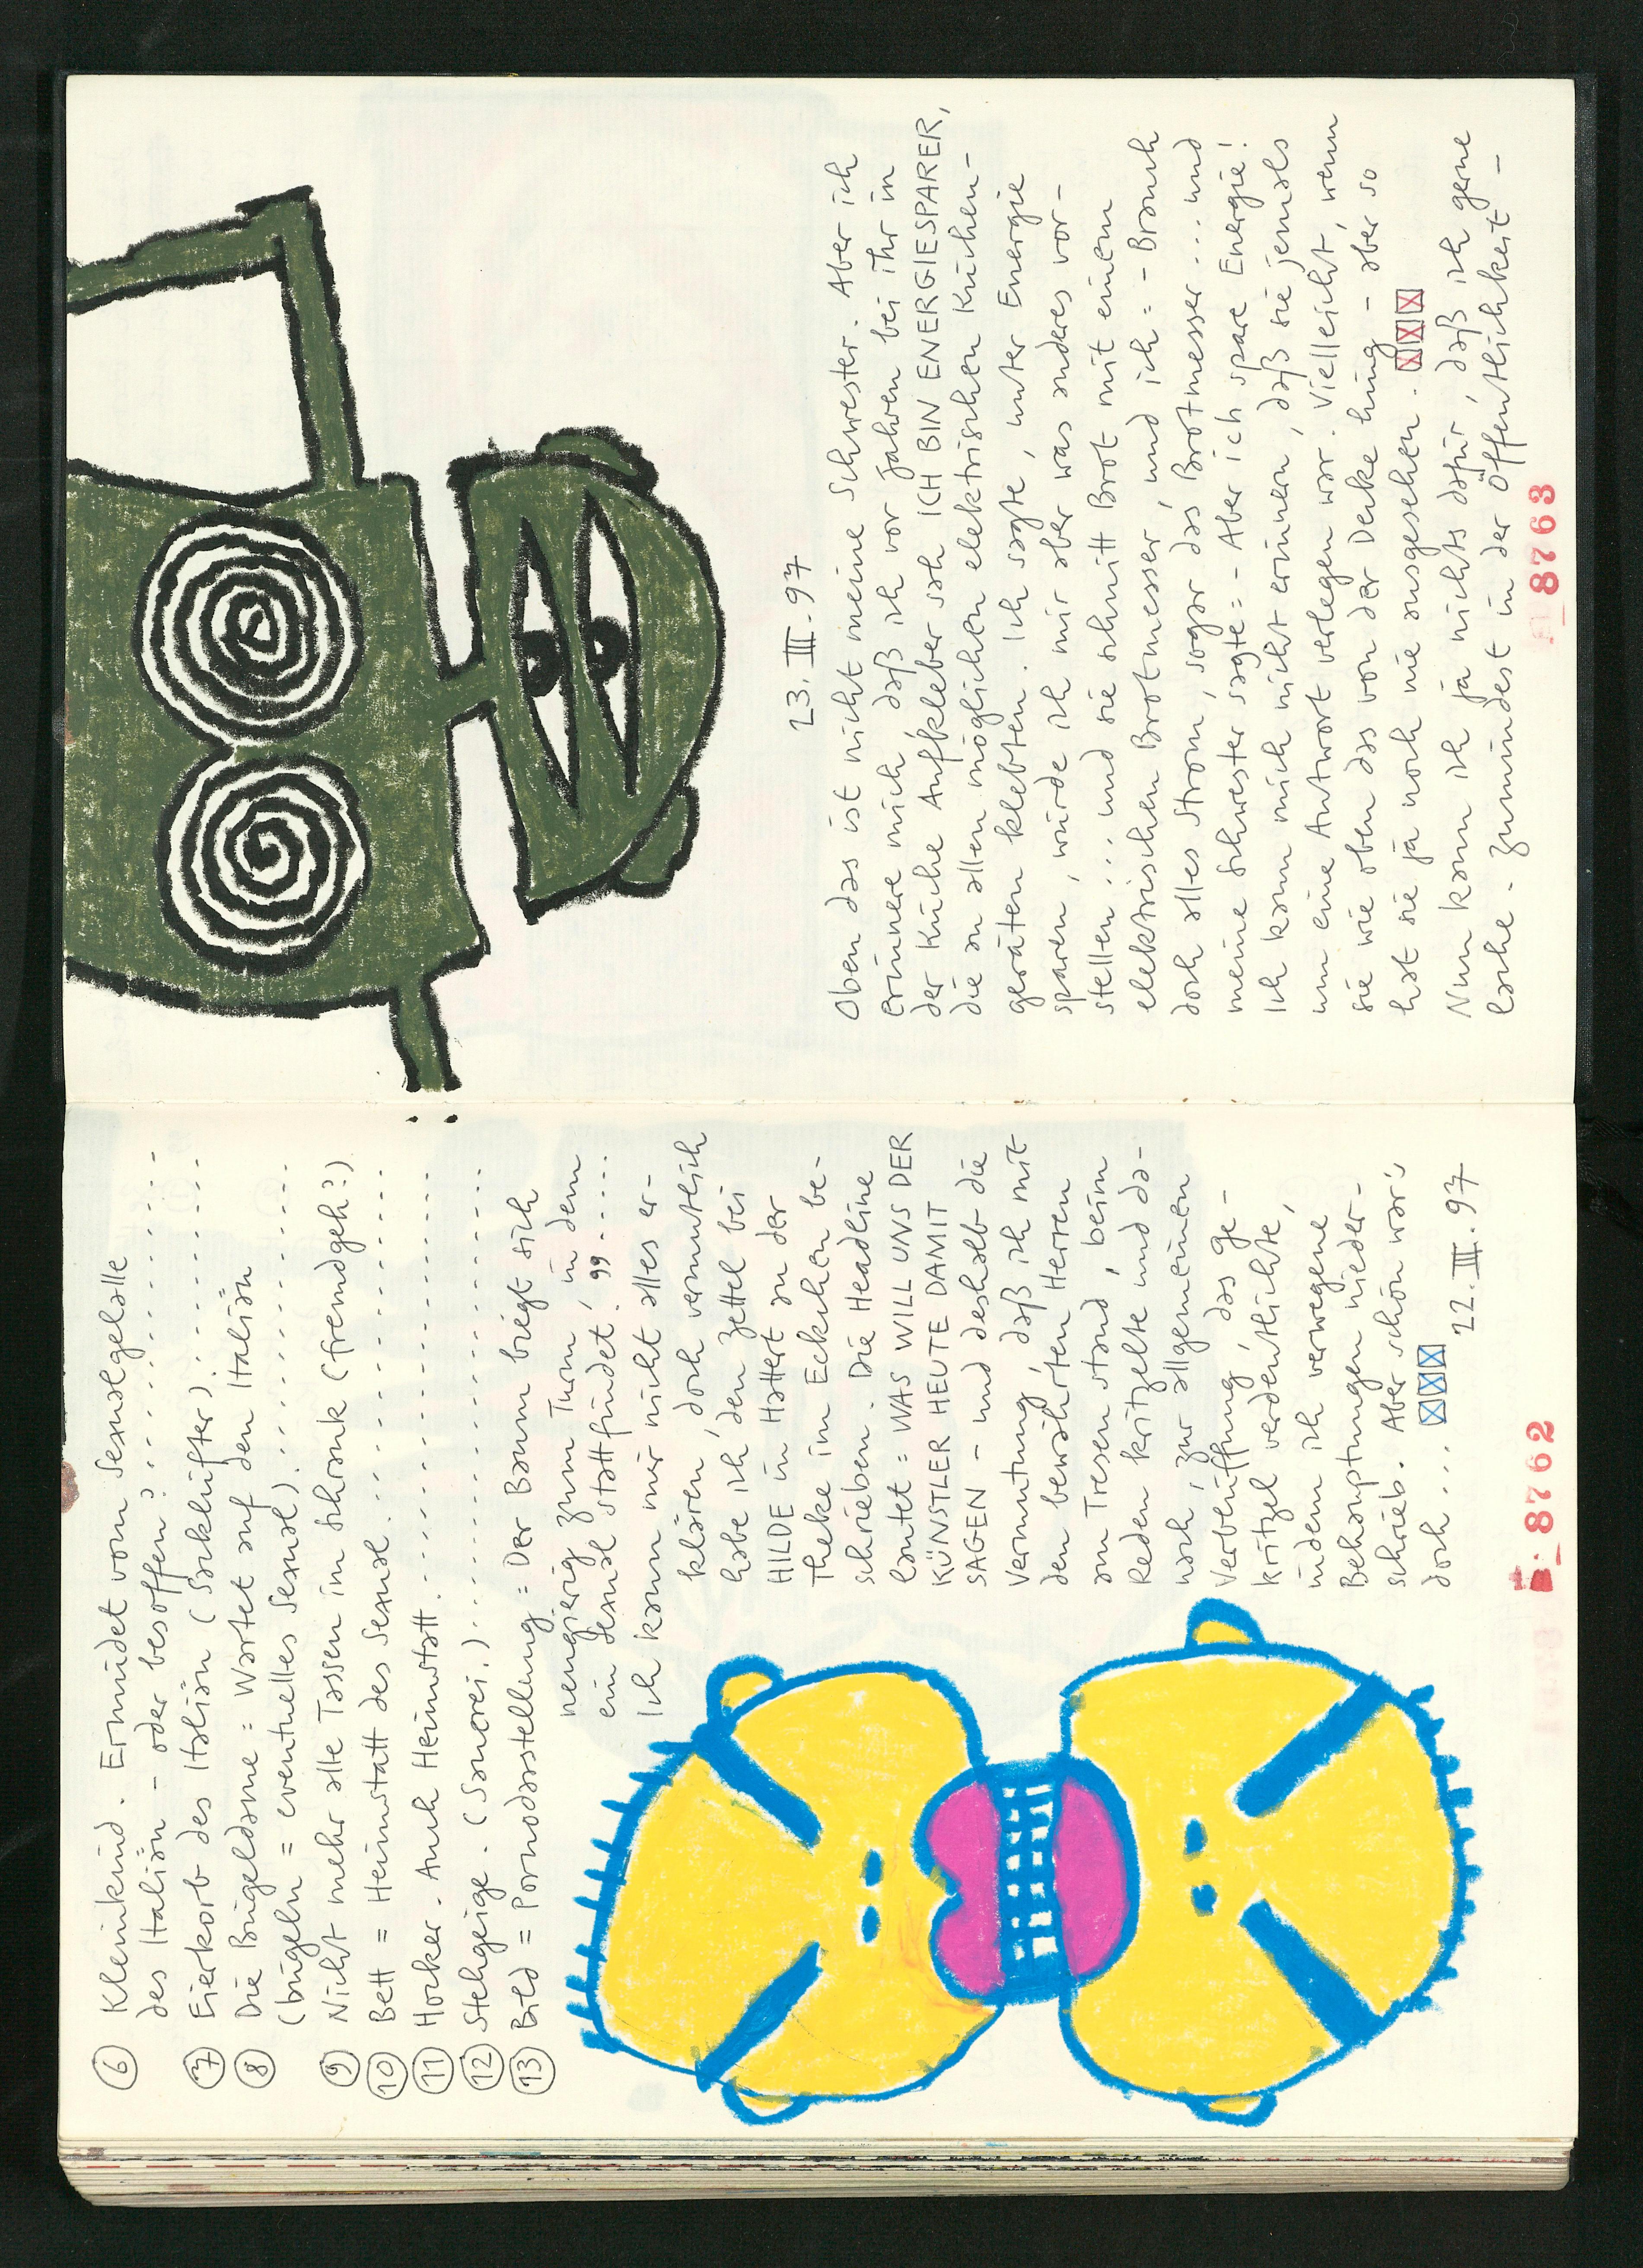 ⑥ Kleinkind. Ermüdet vom Sexualgelalle
des Italiän – oder besoffen?
⑦ Eierkorb des Italiän (Sacklüfter)
⑧ Die Bügeldame = Wartet auf den Italiän
(bügeln = eventuelles Sexual)
⑨ Nicht mehr alle Tassen im Schrank (fremdgeh?)
⑩ Bett = Heimstatt des Sexual
⑪ Hocker. Auch Heimstatt
⑫ Stehgeige. (Sauerei.)
⑬ Bild = Pornodarstellung = Der Baum biegt sich
neugierig zum Turm, in dem
ein Sexual stattfindet.
Ich kann mir nicht alles er-
klären, doch vermutlich
habe ich, den Zettel bei
HILDE in Hattert an der
Theke im Eckchen be-
schrieben. Die Headline
lautet = WAS WILL UNS DER
KÜNSTLER HEUTE DAMIT
SAGEN – und deshalb die
Vermutung, daß ich mit
den bewährten Herren
am Tresen stand, beim
Reden kritzelte und da-
nach, zur allgemeinen
Verblüffung, das Ge-
kritzel verdeutlichte,
indem ich verwegene
Behauptungen nieder-
schrieb. Aber schön war's
doch....
22. III. 97
8762
23. III. 97
Oben das ist nicht meine Schwester. Aber ich
erinnere mich, daß ich vor Jahren bei ihr in
der Küche Aufkleber sah ICH BIN ENERGIESPARER,
die an allen möglichen elektrischen Küchen-
geräten klebten. Ich sagte, unter Energie
sparen, würde ich mir aber was anderes vor-
stellen... und sie schnitt Brot mit einem
elektrischen Brotmesser, und ich = – Brauch
doch alles Strom, sogar das Brotmesser... und
meine Schwester sagte = – Aber ich spare Energie!
Ich kann mich nicht erinnern, daß sie jemals
um eine Antwort verlegen war. Vielleicht, wenn
sie wie oben das von der Decke hing – aber so
hat sie ja noch nie ausgesehen.
Nun kann ich ja nichts dafür, daß ich gerne
lache. Zumindest in der Öffentlichkeit –
8763